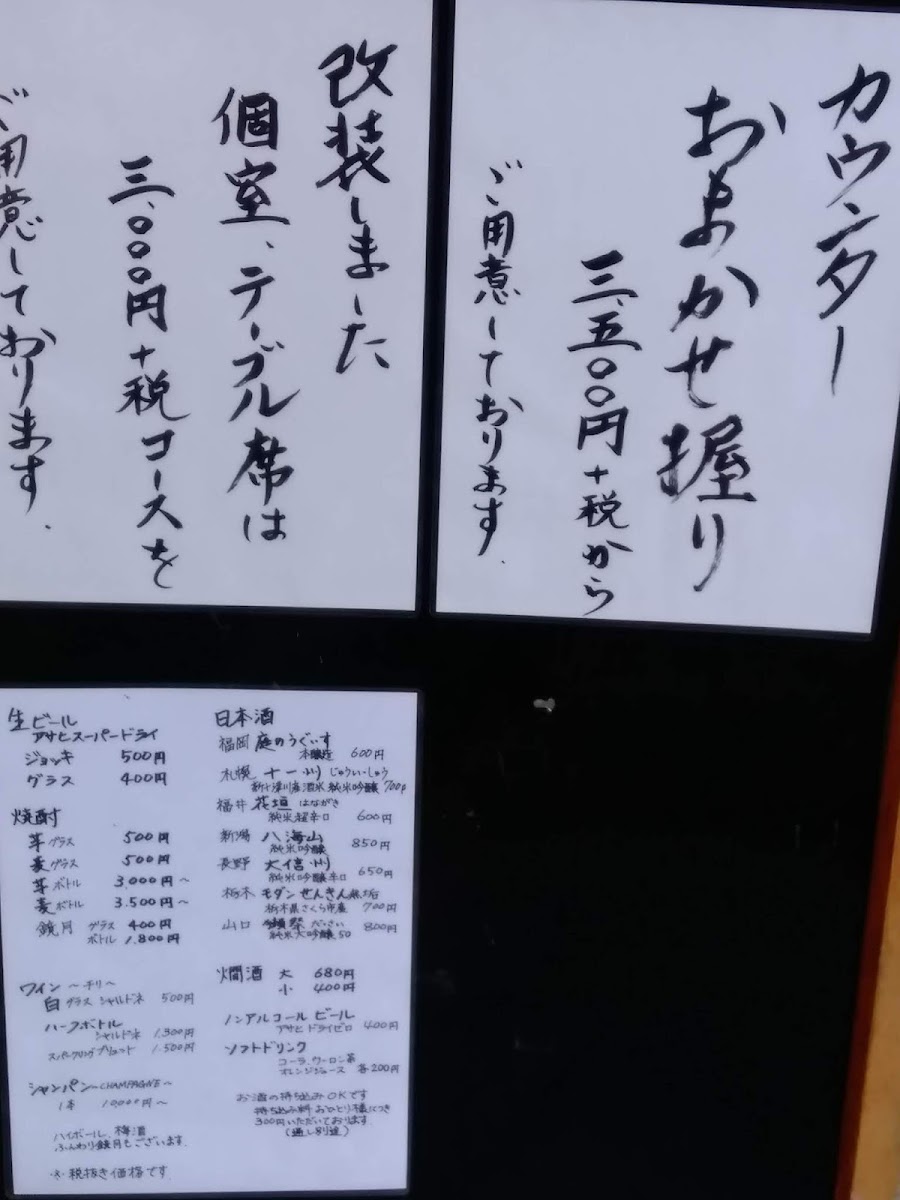 カウンター
おまかせ握り
三、五〇〇円+税から
ご用意しております.
改装しました
個室、テーブル席は
三、〇〇〇円+税コースを
ご用意しております.
生ビール
アサヒスーパードライ
ジョッキ 500円
グラス 400円
焼酎
芋グラス 500円
麦グラス 500円
芋ボトル 3,000円~
麦ボトル 3.500円~
鏡月 グラス 400円
ボトル 1.800円
ワイン ~チリ~
白 グラス シャルドネ 500円
ハーフボトル
シャルドネ 1.300円
スパークリング ブリュット 1.500円
シャンパン ~CHAMPAGNE~
1本 10,000円~
ハイボール、梅酒
ふんわり鏡月もございます.
※税抜き価格です.
日本酒
福岡 庭のうぐいす
本醸造 600円
札幌 十一州 じゅういっしゅう
新十津川産酒米 純米吟醸 700円
福井 花垣 はながき
純米超辛口 600円
新潟 八海山
純米吟醸 850円
長野 大信州
純米吟醸辛口 650円
栃木 モダンせんきん無垢
栃木県さくら市産 700円
山口 獺祭 だっさい
純米大吟醸50 800円
燗酒 大 680円
小 400円
ノンアルコールビール
アサヒドライゼロ 400円
ソフトドリンク
コーラ、ウーロン茶
オレンジジュース 各200円
お酒の持ち込みOKです
持ち込み料 おひとり様につき
300円いただいております.